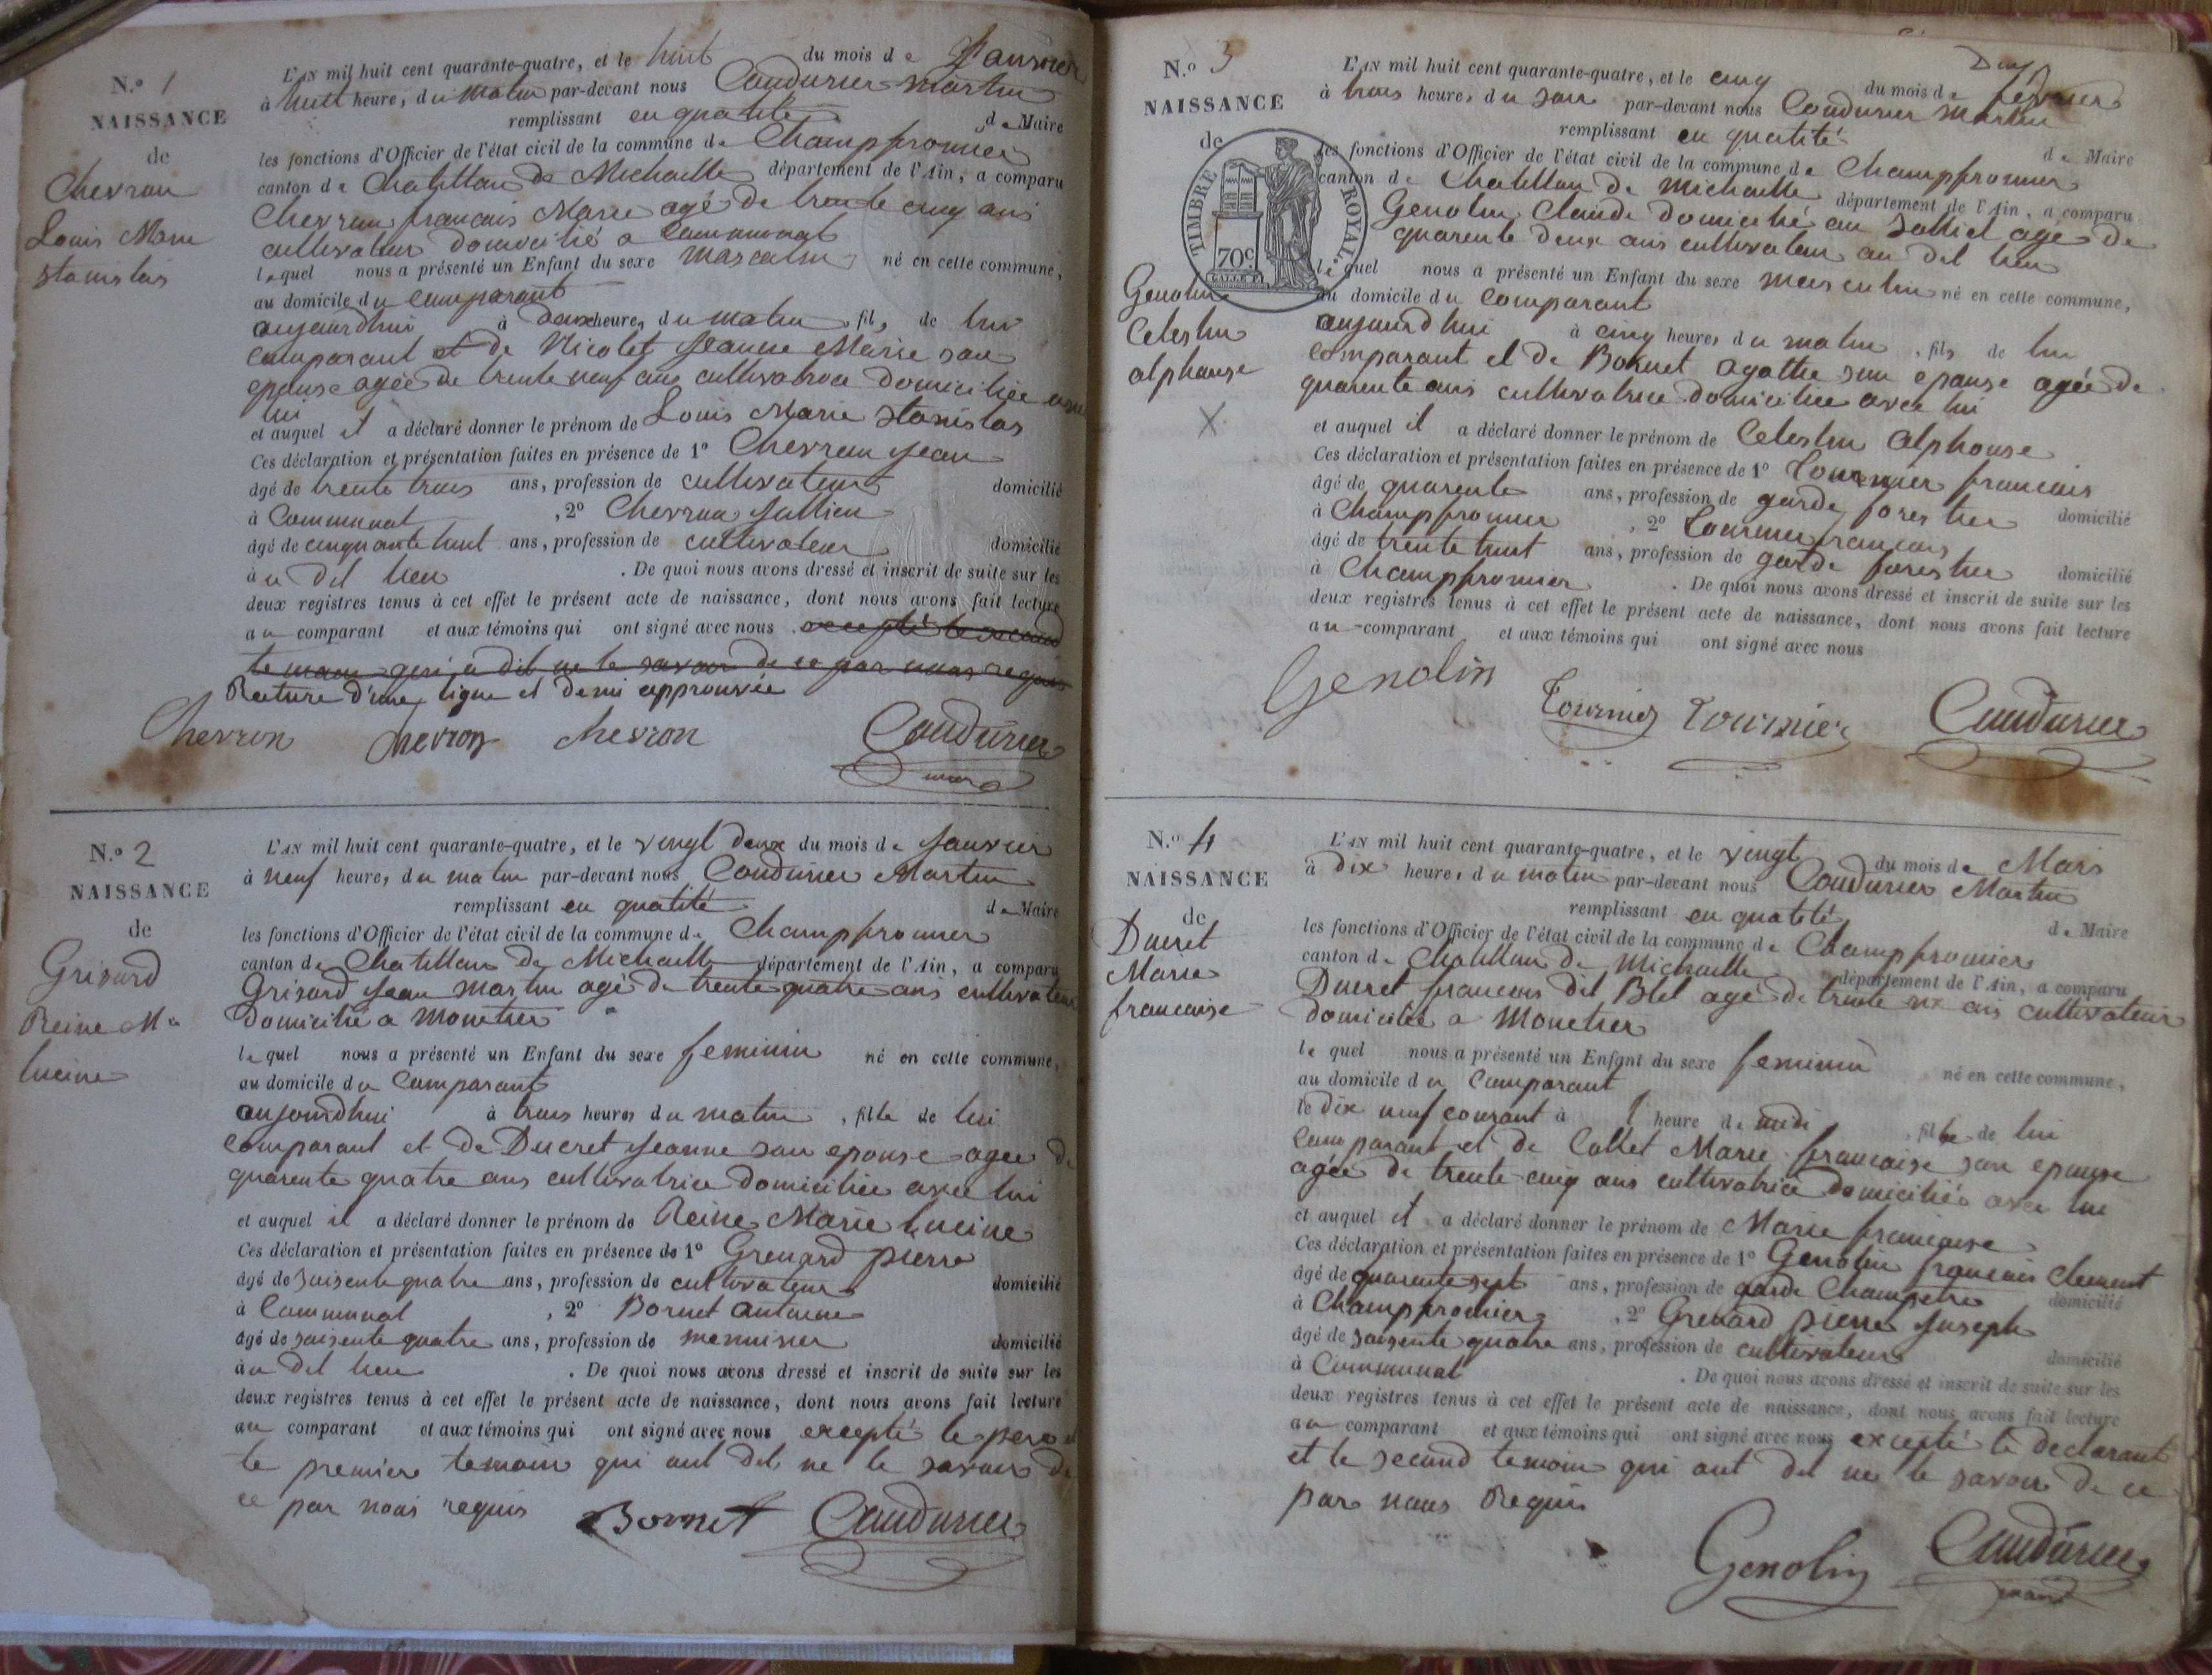 N.º 1
NAISSANCE
de
Chevron
Louis Marie
Stanislas
L'AN mil huit cent quarante-quatre, et le huit du mois de Janvier
à huit heures, du matin par-devant nous Coudurier Martin
remplissant en qualité de Maire
les fonctions d'Officier de l'état civil de la commune de Champfromier
canton de Chatillon de Michaille département de l'Ain, a comparu
Chevron français Marie agé de trente cinq ans
cultivateur domicilié a Communal
lequel nous a présenté un Enfant du sexe masculin né en cette commune,
au domicile du comparant
aujourdhui à deux heures, du matin fils de lui
comparant et de Nicolet Jeanne Marie son
epouse agée de trente neuf ans cultivatrice domiciliée avec
lui
et auquel il a déclaré donner le prénom de Louis Marie Stanislas
Ces déclaration et présentation faites en présence de 1º Chevron Jean
âgé de trente trois ans, profession de cultivateur domicilié
à Communal , 2º Chevron Jullien
âgé de cinquante huit ans, profession de cultivateur domicilié
au dit lieu . De quoi nous avons dressé et inscrit de suite sur les
deux registres tenus à cet effet le présent acte de naissance, dont nous avons fait lecture
au comparant et aux témoins qui ont signé avec nous excepté le second
temoin qui a dit ne le savoir de ce par nous requis
Rature d'une ligne et demi approuvée
Chevron Chevron chevron Coudurier
maire
N.º 2
NAISSANCE
de
Grisard
Reine M.ie
Lucine
L'AN mil huit cent quarante-quatre, et le vingt deux du mois de Janvier
à neuf heures, du matin par-devant nous Coudurier Martin
remplissant en qualité de Maire
les fonctions d'Officier de l'état civil de la commune de Champfromier
canton de Chatillon de Michaille département de l'Ain, a comparu
Grisard Jean Martin agé de trente quatre ans cultivateur
domicilié a Monetier
lequel nous a présenté un Enfant du sexe feminin né en cette commune,
au domicile du Comparant
aujourdhui à trois heures du matin , fille de lui
comparant et de Ducret Jeanne son epouse agée de
quarente quatre ans cultivatrice domiciliée avec lui
et auquel il a déclaré donner le prénom de Reine Marie Lucine
Ces déclaration et présentation faites en présence de 1º Grenard pierre
âgé de soisente quatre ans, profession de cultivateur domicilié
à Communal , 2º Bornet Antoine
âgé de soisente quatre ans, profession de menuisier domicilié
au dit lieu . De quoi nous avons dressé et inscrit de suite sur les
deux registres tenus à cet effet le présent acte de naissance, dont nous avons fait lecture
au comparant et aux témoins qui ont signé avec nous excepté le pere et
le premier temoin qui ont dit ne le savoir de
ce par nous requis Bornet Coudurier
N.º 3
NAISSANCE
de
TIMBRE ROYAL
70c
GALLE
Genolin
Celestin
alphonse
X
L'AN mil huit cent quarante-quatre, et le cinq du mois de fevrier
à trois heures, du soir par-devant nous Coudurier Martin
remplissant en qualité de Maire
les fonctions d'Officier de l'état civil de la commune de Champfromier
canton de Chatillon de Michaille département de l'Ain, a comparu
Genolin Claude domicilié au agé de
quarente deux ans cultivateur au dit lieu
lequel nous a présenté un Enfant du sexe masculin né en cette commune,
au domicile du comparant
aujourdhui à cinq heures du matin , fils de lui
comparant et de Bornet Agathe son epouse agée de
quarente ans cultivatrice domiciliée avec lui
et auquel il a déclaré donner le prénom de Celestin Alphonse
Ces déclaration et présentation faites en présence de 1º Tournier francais
âgé de quarente ans, profession de garde forestier domicilié
à Champfromier , 2º Tournier francois
âgé de trente huit ans, profession de garde forestier domicilié
à Champfromier . De quoi nous avons dressé et inscrit de suite sur les
deux registres tenus à cet effet le présent acte de naissance, dont nous avons fait lecture
au comparant et aux témoins qui ont signé avec nous
Genolin Tournier Tournier Coudurier
N.º 4
NAISSANCE
de
Ducret
Marie
francaise
L'AN mil huit cent quarante-quatre, et le vingt du mois de Mars
à dix heures, du matin par-devant nous Coudurier Martin
remplissant en qualité de Maire
les fonctions d'Officier de l'état civil de la commune de Champfromier
canton de Chatillon de Michaille département de l'Ain, a comparu
Ducret francois dit Blet agé de trente six ans cultivateur
domicilié a Monetier
lequel nous a présenté un Enfant du sexe feminin né en cette commune,
au domicile du Comparant
le dix neuf courant à heure de midi , fille de lui
comparant et de Collet Marie francaise son epouse
agée de trente cinq ans cultivatrice domiciliée avec lui
et auquel il a déclaré donner le prénom de Marie francaise
Ces déclaration et présentation faites en présence de 1º Genolin francais Clement
âgé de quarente sept ans, profession de garde Champetre domicilié
à Champfromier , 2º Grenard pierre Joseph
âgé de soisente quatre ans, profession de cultivateur domicilié
à Communal . De quoi nous avons dressé et inscrit de suite sur les
deux registres tenus à cet effet le présent acte de naissance, dont nous avons fait lecture
au comparant et aux témoins qui ont signé avec nous excepté le declarant
et le second temoin qui ont dit ne le savoir de ce
par nous Requis
Genolin Coudurier
maire